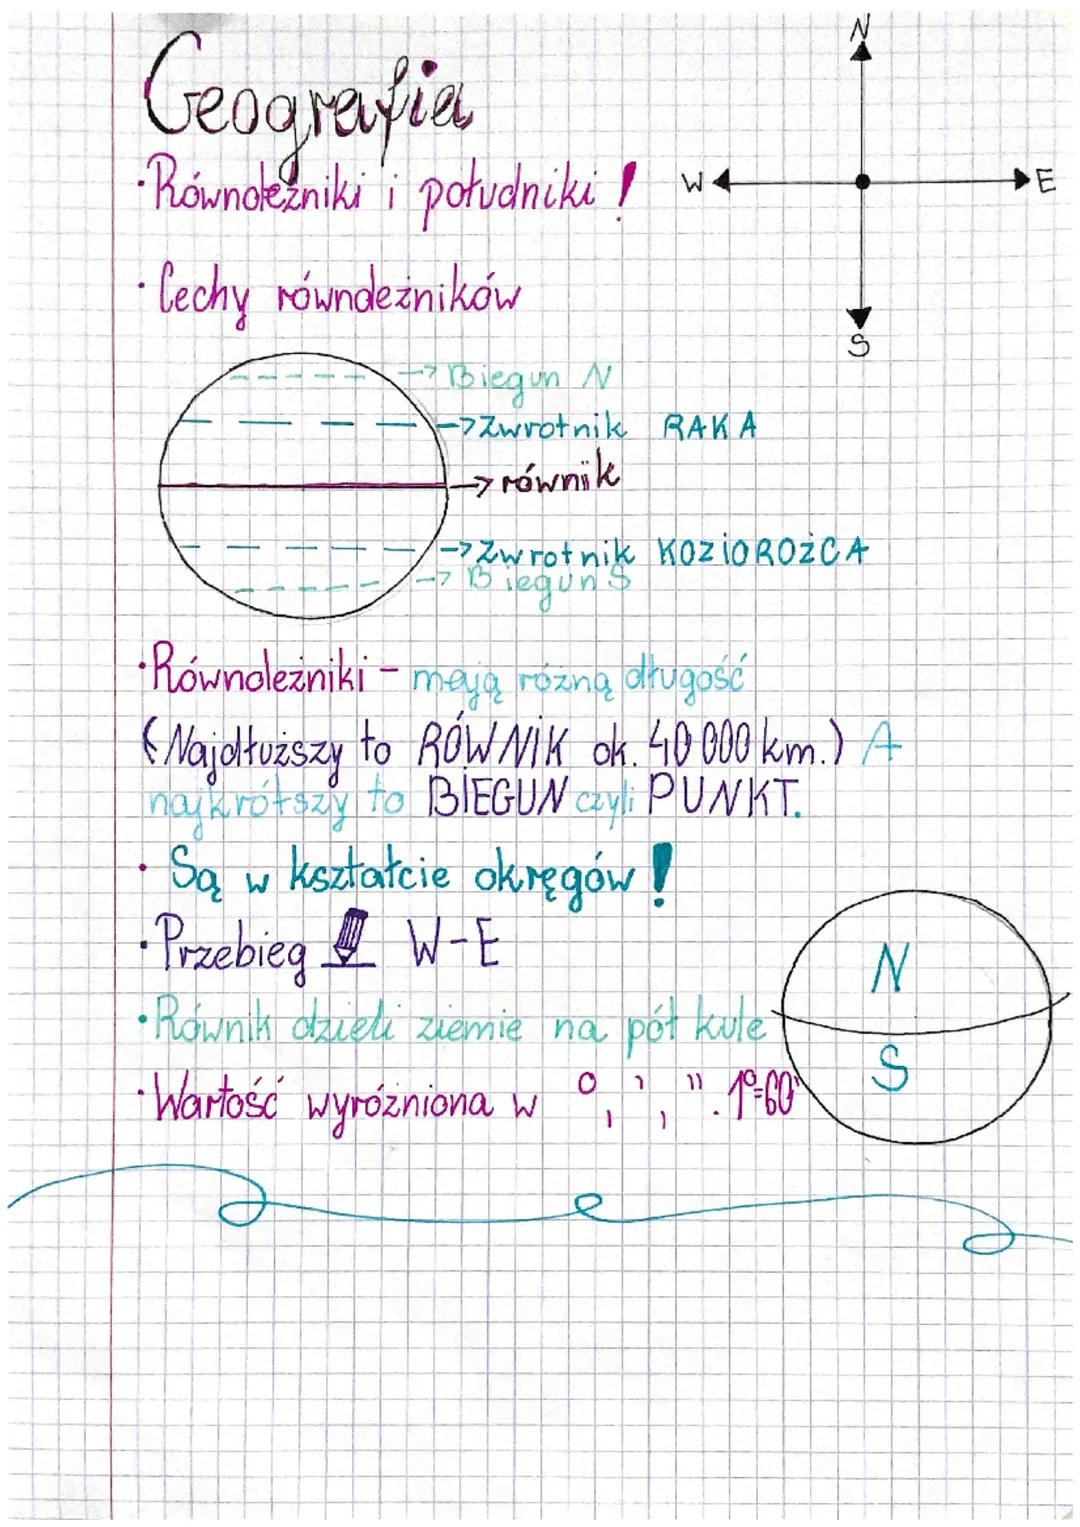 Geografia
N
• Równoleżniki i południki !
W
E
• Cechy równoleżników
S
→ Biegun N
→ Zwrotnik RAKA
→ równik
→ Zwrotnik KOZIOROŻCA
→ Biegun S
• Równoleżniki - mają różną długość
(Najdłuższy to RÓWNIK ok. 40 000 km.) A
najkrótszy to BIEGUN czyli PUNKT.
• Są w kształcie okręgów !
• Przebieg W-E
N
• Równik dzieli ziemie na pół kule
S
• Wartość wyróżniona w °, ', ". 1°=60'